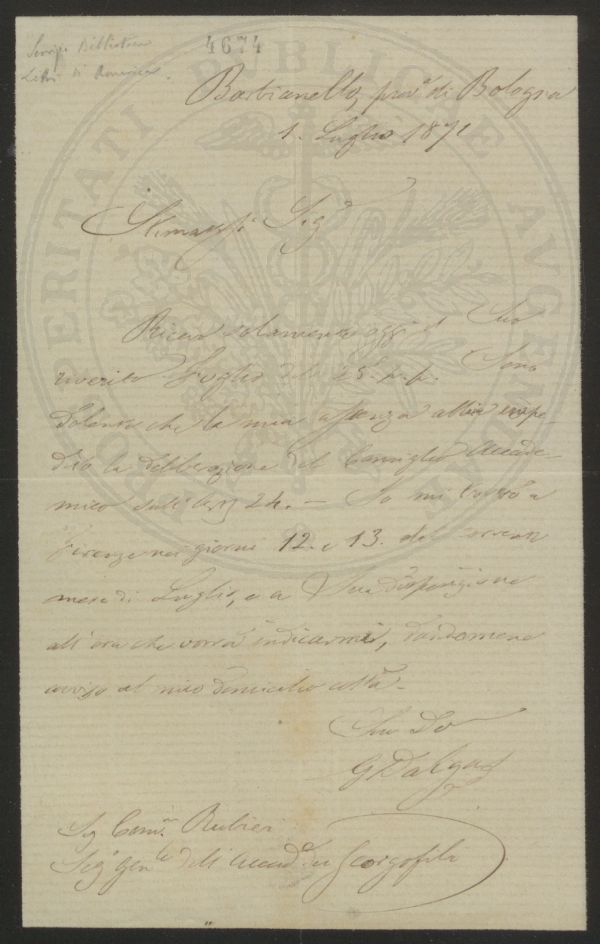 4674
Barbianello, prov.ª di Bologna
1. Luglio 1871
Stimatis.º Sig.r
Ricevo solamente oggi il Suo
riverito foglio del 28. p.p. Sono
dolente che la mia assenza abbia impe-
dito la deliberazione del Consiglio Accade-
mico sull' 24. — Io mi troverò a
Firenze nei giorni 12. e 13. del corrente
mese di Luglio, e a Sua disposizione
all' ora che vorrà indicarmi, dandomene
avviso al mio domicilio costà.
Suo Dev
G Dalgas
Sig Comm.e Rubieri
Seg.o Gen.le dell' Accad. dei Georgofili
PROSPERITATI PUBLICAE AUGENDAE